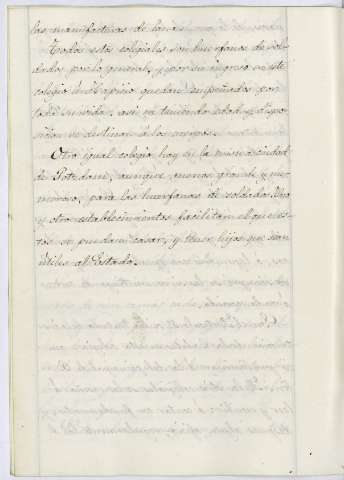 las manufacturas de
Todos estos colegiales son huerfanos de sol-
dados por lo general, y por su ingreso en este
colegio hospicio quedan empeñados por
toda su vida, asi ya teniendo edad y dispo-
sicion se destinan á los cuerpos.
Otro igual colegio hay en la misma ciudad
de Potsdam, aunque menos grande y nu-
meroso, para las huerfanas de soldados. Uno
y otro establecimientos facilitan el que es-
tos se puedan casar, y tener hijos que sean
utiles al Estado.